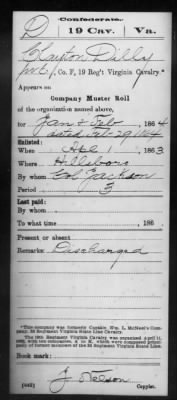 Confederate.
D 19 Cav. Va.
Clayton Dilley
Pvt., Co. F, 19 Reg't Virginia Cavalry.*
Appears on
Company Muster Roll
of the organization named above,
for Jan & Feb 1864
dated Feb 29, 1864
Enlisted:
When Apl 1, 1863
Where Hillsboro
By whom Col Jackson
Period 3
Last paid:
By whom
To what time , 186 .
Present or absent
Remarks: Discharged
*This company was formerly Captain Wm. L. McNeel's Company, 3d Regiment Virginia State Line Cavalry.
The 19th Regiment Virginia Cavalry was organized April 11, 1863, with ten companies, A to K, which were composed principally of former members of the 3d Regiment Virginia State Line.
Book mark:
(642) J. Nelson
Copyist.